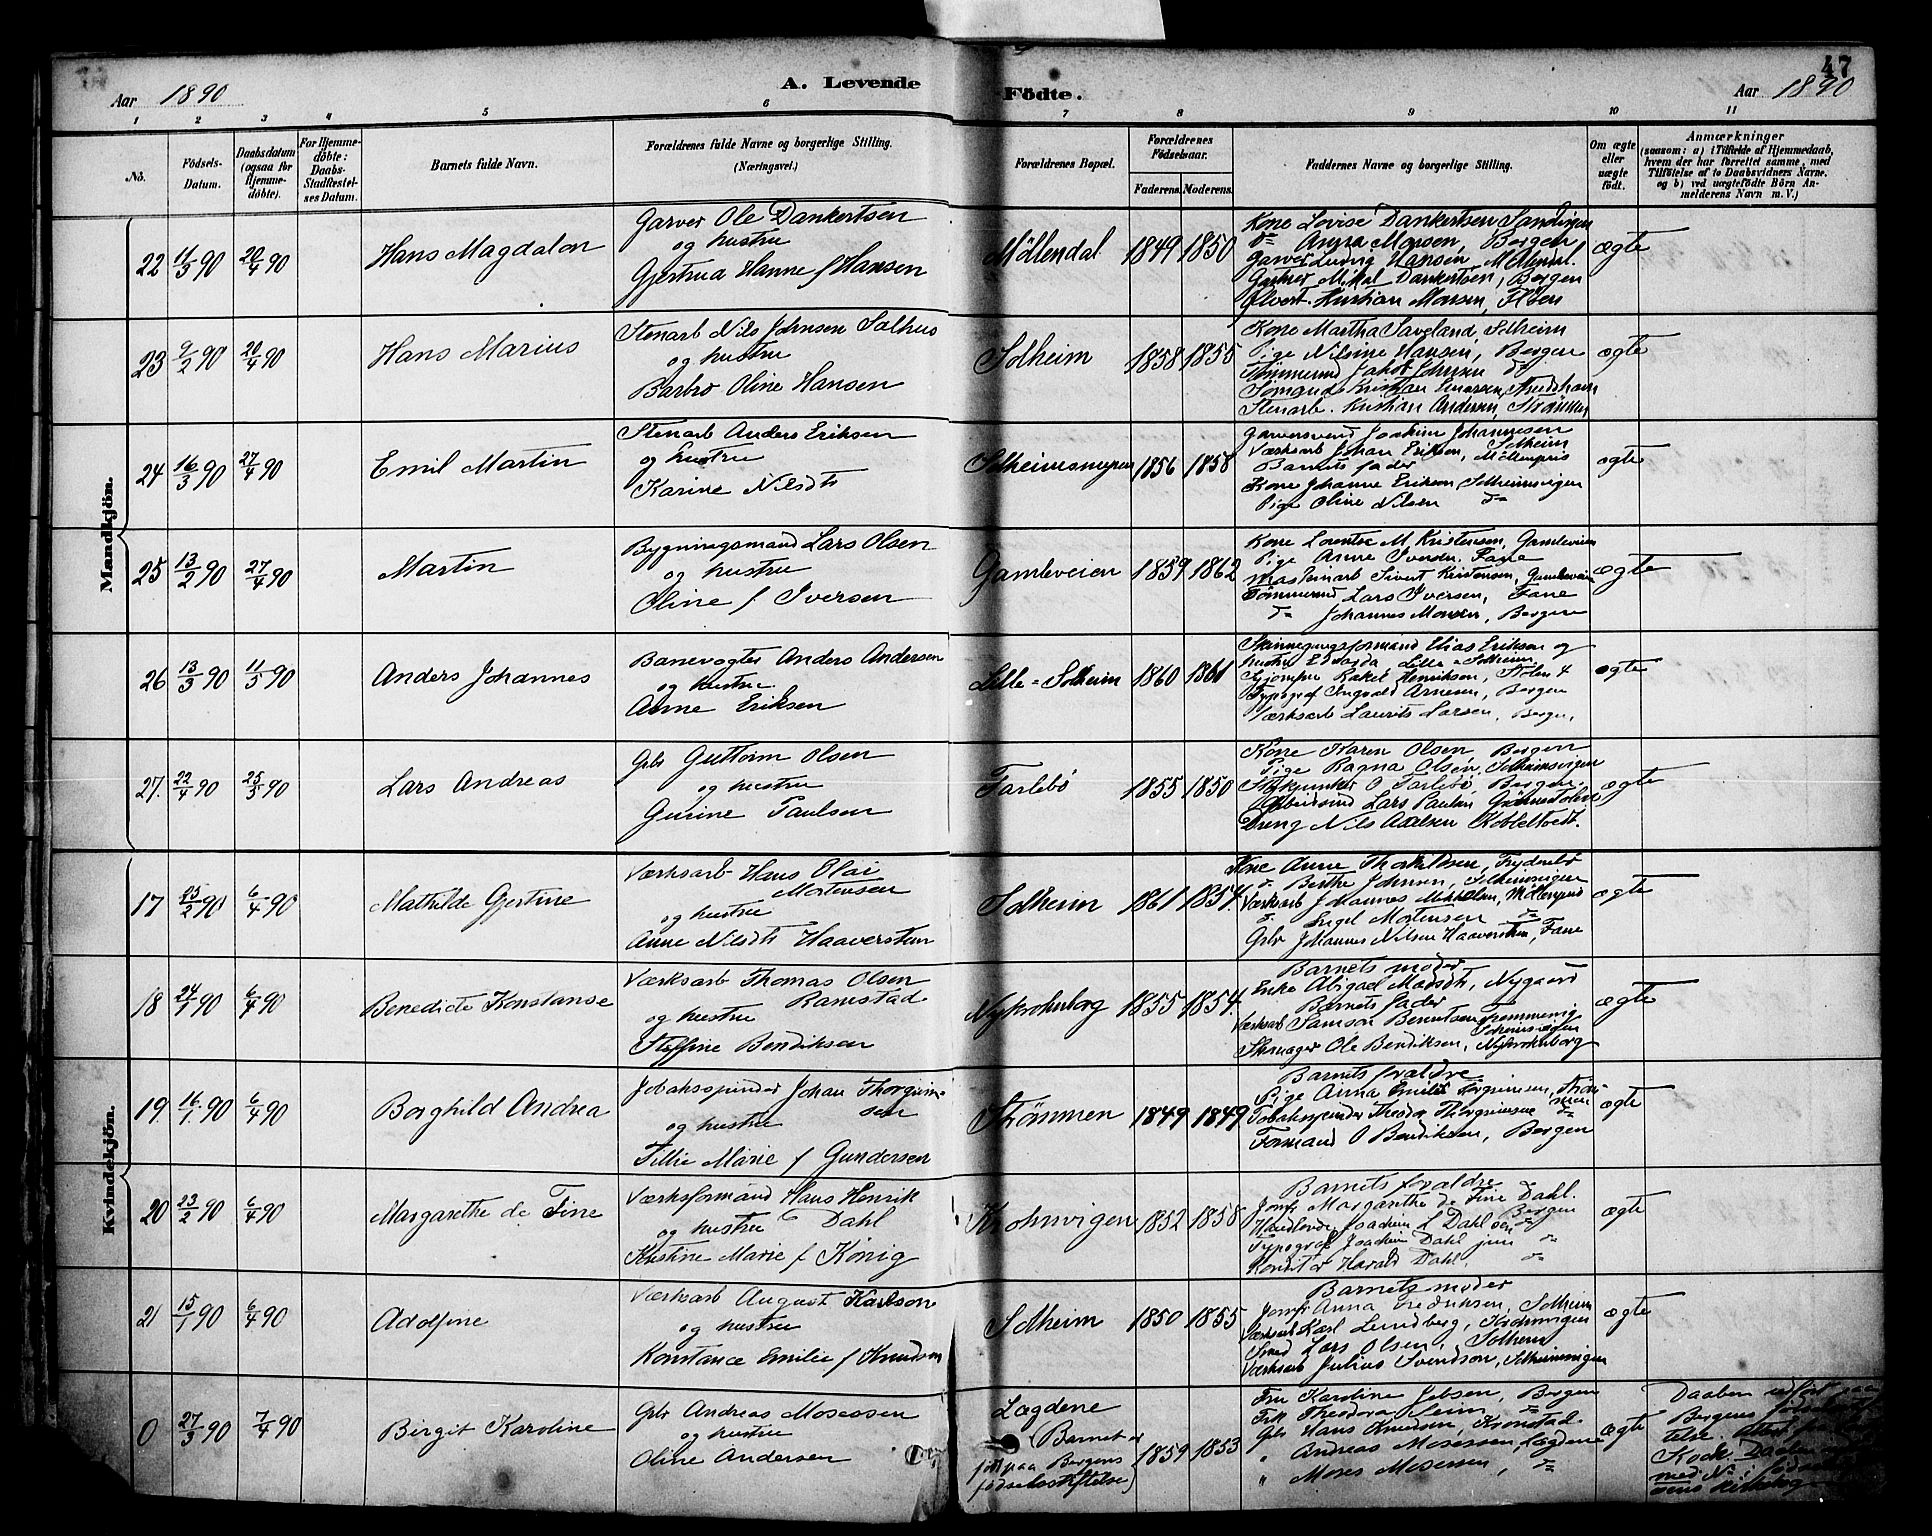 47
Aar 1890
A. Levende Födte.
Aar 1890
1 2 3 4 5 6 7 8 9 10 11
No.
Födsels-Datum.
Daabsdatum (ogsaa for Hjemme-döbte).
For Hjemme-döbte: Daabs-Stadfæstel-ses Datum.
Barnets fulde Navn.
Forældrenes fulde Navne og borgerlige Stilling. (Næringsvei.)
Forældrenes Bopæl.
Forældrenes Födselsaar.
Faderens. Moderens.
Faddernes Navne og borgerlige Stilling.
Om ægte eller uægte födt.
Anmærkninger
(saasom: a) i Tilfælde af Hjemmedaab, hvem der har forrettet samme, med Tilföielse af to Daabsvidners Navne. og b) ved uægtefödte Börn An-melderens Navn m. V.)
Mandkjön.
22 11/3 90 20/4 90 Hans Magdalon
Garver Ole Dankertsen
og hustru
Gjertrud Hanne f Hansen
Möllendal 1849 1850
Kone Lovise Dankertsen Sandvigen
do Anna Monsen, Bergen
Garver Ludvig Hansen, Möllendal.
Gartner Mikal Dankertsen, Bergen
Kristian Monsen,
ægte
23 9/2 90 20/4 90 Hans Marius
Stenarb Nils Johnsen Salhus
og hustru
Barbro Oline Hansen
Solheim 1858 1855
Kone Martha Saveland, Solheim
Pige Nilsine Hansen, Bergen
Tömmermd Jakob Johnsen do
Sömand Kristian
Stenarb. Kristian Andersen, Strömmen
ægte
24 16/3 90 27/4 90 Emil Martin
Stenarb Anders Eriksen
og hustru
Karine Nilsdt
Solheimsmyren 1856 1858
Garversvend Joakim Johannesen Solheim
Værksarb Johan Eriksen, Möllenpris
Barnets fader
Kone Johanne Eriksen Solheimsvigen
Pige Oline Nilsen do
ægte
25 13/2 90 27/4 90 Martin
Bygningsmand Lars Olsen
og hustru
Oline f Iversen
Gamleveien 1859 1862
Kone Lorentse M Kristensen, Gamleveien
Pige Anne Iversdt. Fane
Sivert Kristensen, Gamleveien
Tömmermd Lars Iversen, Fane
do Johannes Monsen, Bergen
ægte
26 13/3 90 11/5 90 Anders Johannes
Banevogter Anders Andersen
og hustru
Anne Eriksen
Lille-Solheim 1860 1861
Skinnegangsformand Elias Eriksen og
hustru Edvarda, Lille-Solheim
Rakel Henriksen,
Typograf Ingvald Arnesen, Bergen
Værksarb Laurits Larsen, Bergen,
ægte
27. 22/4 90 25/5 90 Lars Andreas
Gbr Guttorm Olsen
og hustru
Gurine Paulsen
Tarlebö 1855 1850
Kone Karen Olsen, Bergen
Pige Ragna Olsen, Solheimsvigen
O Tarlebö, Bergen.
Arbeidsmd Lars Paulsen
Dreng Nils Axelsen Kobbeltvedt.
ægte
Kvindekjön.
17 25/2 90 6/4 90 Mathilde Gjertine
Værksarb Hans Olai
Mortensen
og hustru
Anne Nilsdt Haaverstun
Solheim 1861 1854.
Kone Anne Thorkildsen, Frydenbö
do Berthe Johnsen, Solheimsvigen
Værksarb Johannes Mikkelsen, Möllenpris
do Engel Mortensen do
Gbr Johannes Nilsen Haaverstun, Fane
ægte
18 24/1 90 6/4 90 Benedicte Konstanse
Værksarb Thomas Olsen
Ramstad
og hustru
Steffine Bendiksen
Nykrohnborg 1855 1854.
Barnets moder
Enke Abigael Madsdt, Nygaard
Barnets fader
Værksarb Samson Berentsen Solheimsvigen
Skomager Ole Bendiksen, Nykrohnborg
ægte
19. 16/1. 90 6/4 90 Borghild Andrea
Tobaksspinder Johan Thorgrim-
sen
og hustru
Tillie Marie f Gundersen
Strömmen 1849 1849
Barnets forældre
Pige Anna Emilie Torgrimsen, Ström-
men
Tobaksspinder Theodor Thorgrimsen do
Formand O Bendiksen, Bergen
ægte
20 23/2 90 6/4 90 Margarethe de Fine
Værksformand Hans Henrik
og hustru Dahl
Kristine Marie f König
Krohnvigen 1852 1858
Barnets forældre
Jomfr Margarethe de Fine Dahl. Bergen
Joachim L Dahl sen do
Typograf Joachim Dahl jun do
Konditor Harald Dahl, do
ægte
21 15/1 90 6/4 90 Adolfine
Værksarb August Karlson
og hustru
Konstance Emilie f Knudsen
Solheim 1850 1855
Barnets moder
Jomfr Anna Fredriksen, Solheim
Værksarb Karl Lundberg, Krohnvigen
Smed Lars Olsen, Solheim
Værksarb Julius Svendson, Solheimsvigen
ægte
0 27/3 90 7/4 90 Birgit Karoline
Gbr Andreas Mosessen
og hustru
Oline Andersen
Lægdene
(Barnet er
födt paa Bergens
födselsstiftelse)
1859 1853
Fru Karoline Jebsen, Bergen
Frk Theodora Heim do
Gbr Hans Knudsen, Kronstad
" Andreas Mosessen, Lægdene
" Moses Mosessen, do
ægte
Daaben udfört paa
Bergens födselsstif-
telse.
Kock. Daaben
med No 1